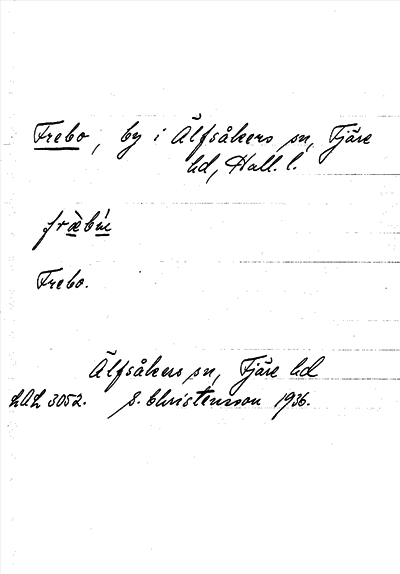 Frebo, by i Älfsåkers sn, Fjäre
hd, Hall. l.
Frebo.
Älfsåkers sn, Fjäre hd
LAL 3052. S. Christensson 1936.